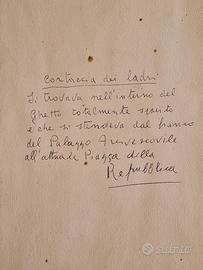 cortaccia dei ladri
Si trovava nell'interno del
Ghetto totalmente sparito
e che si stendeva dal fianco
del Palazzo Arcivescovile
all'attuale Piazza della
Repubblica
subito